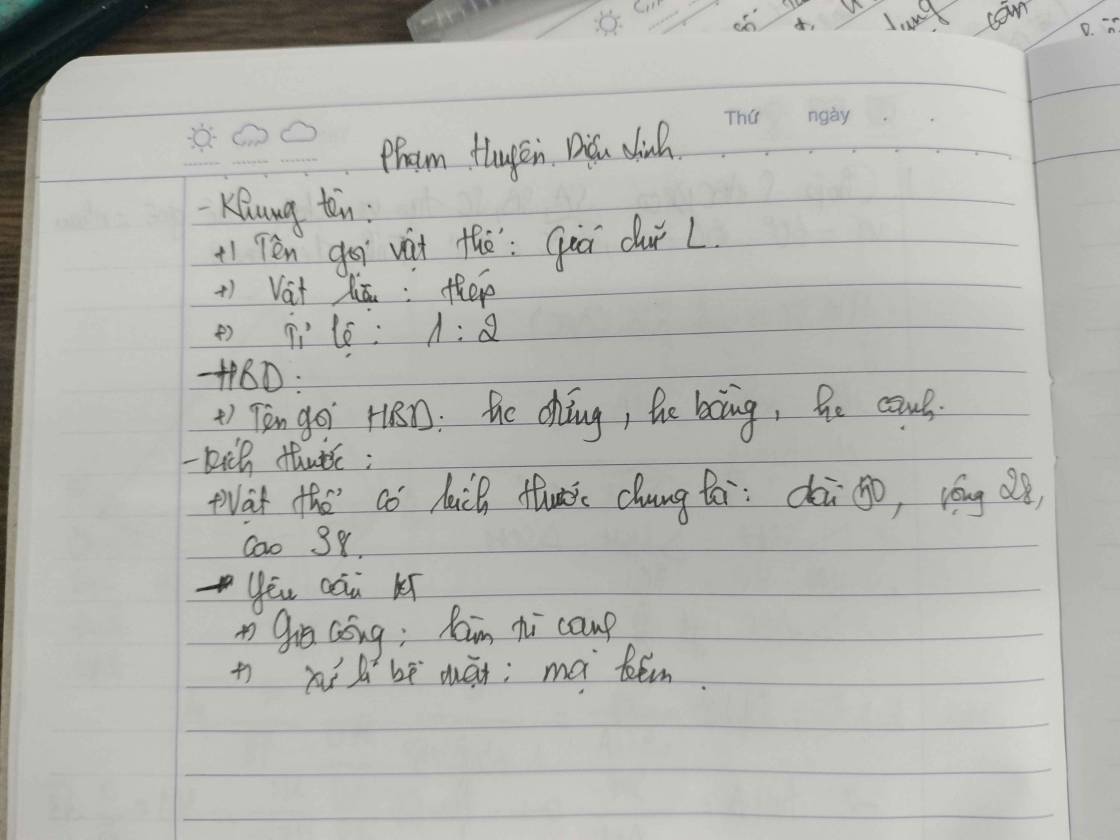 cố
lung
cần
Thứ ngày
Phạm Huyền Diệu Linh.
- Khung tên:
+) Tên gọi vật thể: Giá chữ L.
+) Vật liệu: thép
+) Tỉ lệ: 1:2
- HBD:
+) Tên gọi HBD: hc đứng, hc bằng, hc cạnh.
- Kích thước:
+) Vật thể có kích thước chung là: dài 50, rộng 28,
cao 38.
- Yêu cầu kT
+) Gia công: làm tù cạnh
+) xử lí bề mặt: mạ kẽm.